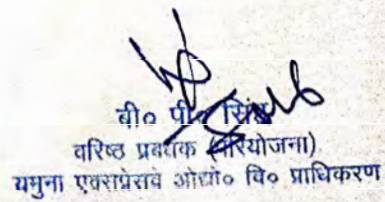 बी० पी० सिंह
वरिष्ठ प्रबंधक (परियोजना)
यमुना एक्सप्रेसवे औद्यो० वि० प्राधिकरण